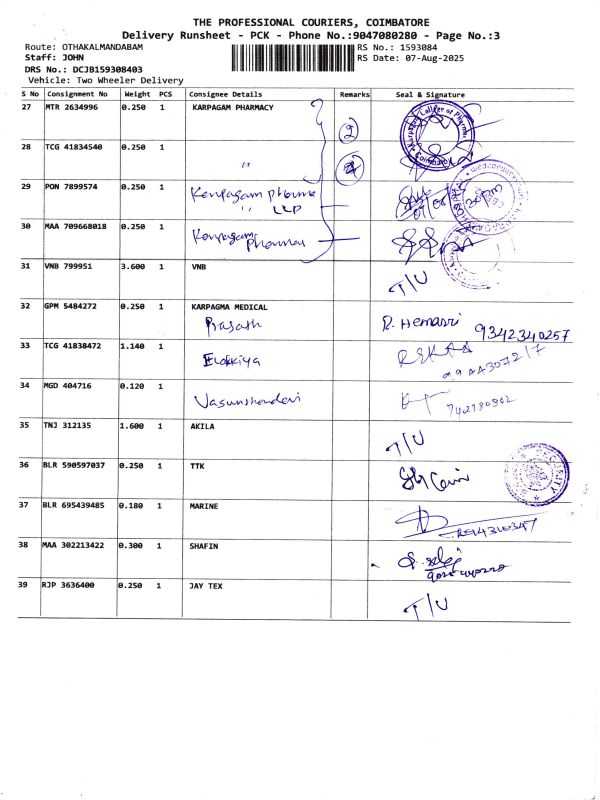 THE PROFESSIONAL COURIERS, COIMBATORE
Delivery Runsheet - PCK - Phone No.:9047080280 - Page No.:3
Route: OTHAKALMANDABAM RS No.: 1593084
Staff: JOHN RS Date: 07-Aug-2025
DRS No.: DCJB159308403
Vehicle: Two Wheeler Delivery
S No Consignment No Weight PCS Consignee Details Remarks Seal & Signature
27 MTR 2634996 0.250 1 KARPAGAM PHARMACY
2
28 TCG 41834540 0.250 1
"
29 PON 7899574 0.250 1 Karpagam pharma
" LLP
30 MAA 709668018 0.250 1 Karpagam
Pharmacy
31 VNB 799951 3.600 1 VNB T/U
32 GPM 5484272 0.250 1 KARPAGMA MEDICAL
Prasath R. Hemasri 9342340257
33 TCG 41838472 1.140 1
Elakkiya
34 MGD 404716 0.120 1
35 TNJ 312135 1.600 1 AKILA T/U
36 BLR 590597037 0.250 1 TTK
SECURITY
37 BLR 695439485 0.180 1 MARINE
38 MAA 302213422 0.300 1 SHAFIN
39 RJP 3636400 0.250 1 JAY TEX T/U